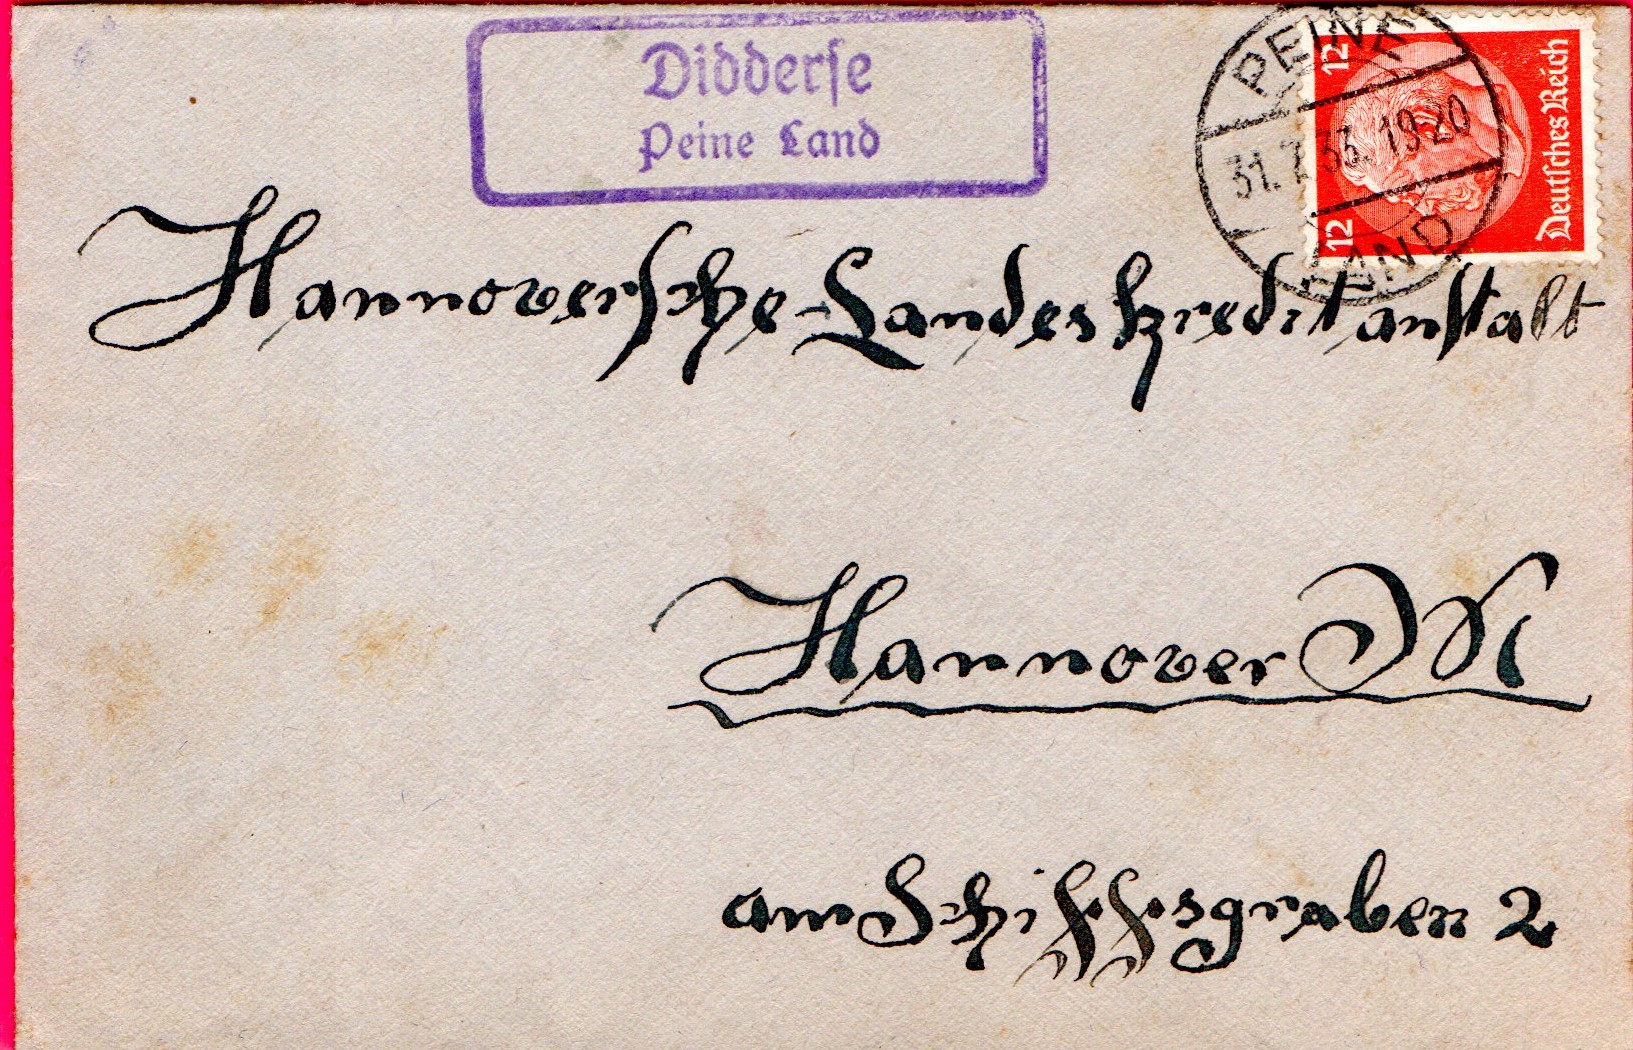 Didderse
Peine Land
PEINE
31.7.33.19-20
LAND
12
12
Deutsches Reich
Hannoversche-Landeskreditanstalt
Hannover M
am Schiffsgraben 2